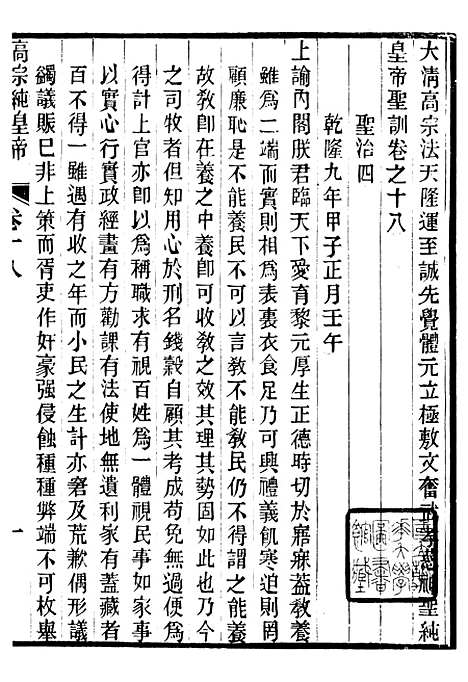 大清高宗法天隆運至誠先覺體元立極敷文奮武孝慈神聖純
皇帝聖訓卷之十八
聖治四
乾隆九年甲子正月壬午
上諭內閣朕君臨天下愛育黎元厚生正德時切於寤寐蓋敎養
雖爲二端而實相爲表裏衣食足而後可興禮義飢寒迫則罔
顧廉恥是不能養民不可以言敎不能敎民仍不得謂之能養
故敎卽在養之中養卽可收敎之效其理其勢固如此也乃今
之司牧者但知用心於刑名錢穀自顧其考成苟免無過便爲
得計上官亦卽以爲稱職求有視百姓爲一體視民事如家事
以實心行實政經畫有方勸課有法使地無遺利家有蓋藏者
百不得一雖遇有收之年而小民之生計亦窘及荒歉偶形議
蠲議賑巳非上策而胥吏作奸豪强侵蝕種種弊端不可枚舉
高宗純皇帝
卷十八
一